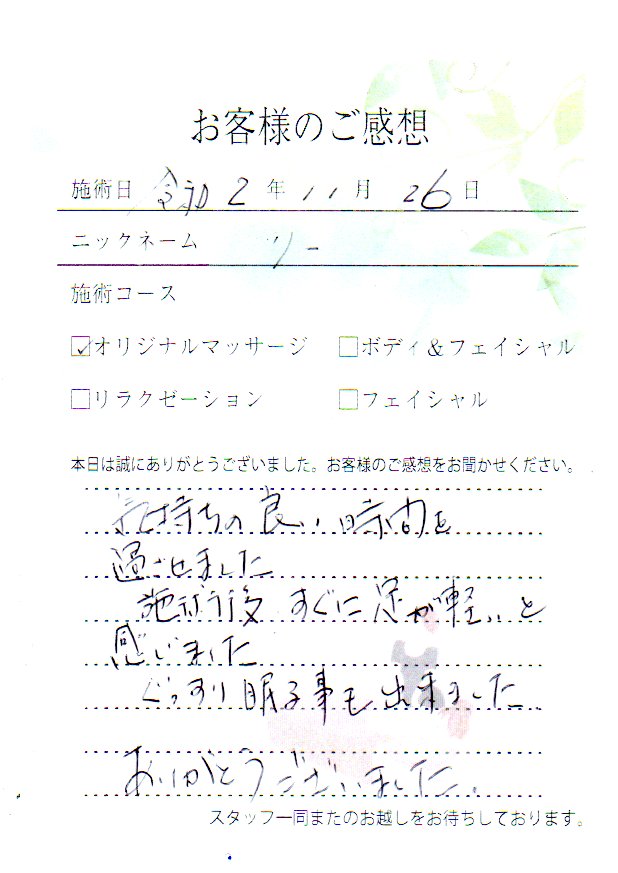 お客様のご感想
施術日 令和2年11月26日
ニックネーム リー
施術コース
☑オリジナルマッサージ □ボディ＆フェイシャル
□リラクゼーション □フェイシャル
本日は誠にありがとうございました。お客様のご感想をお聞かせください。
気持ちの良い時間を
過ごせました
施術後 すぐに足が軽いと
感じました
ぐっすり眠る事も出来ました
ありがとうございました。
スタッフ一同またのお越しをお待ちしております。